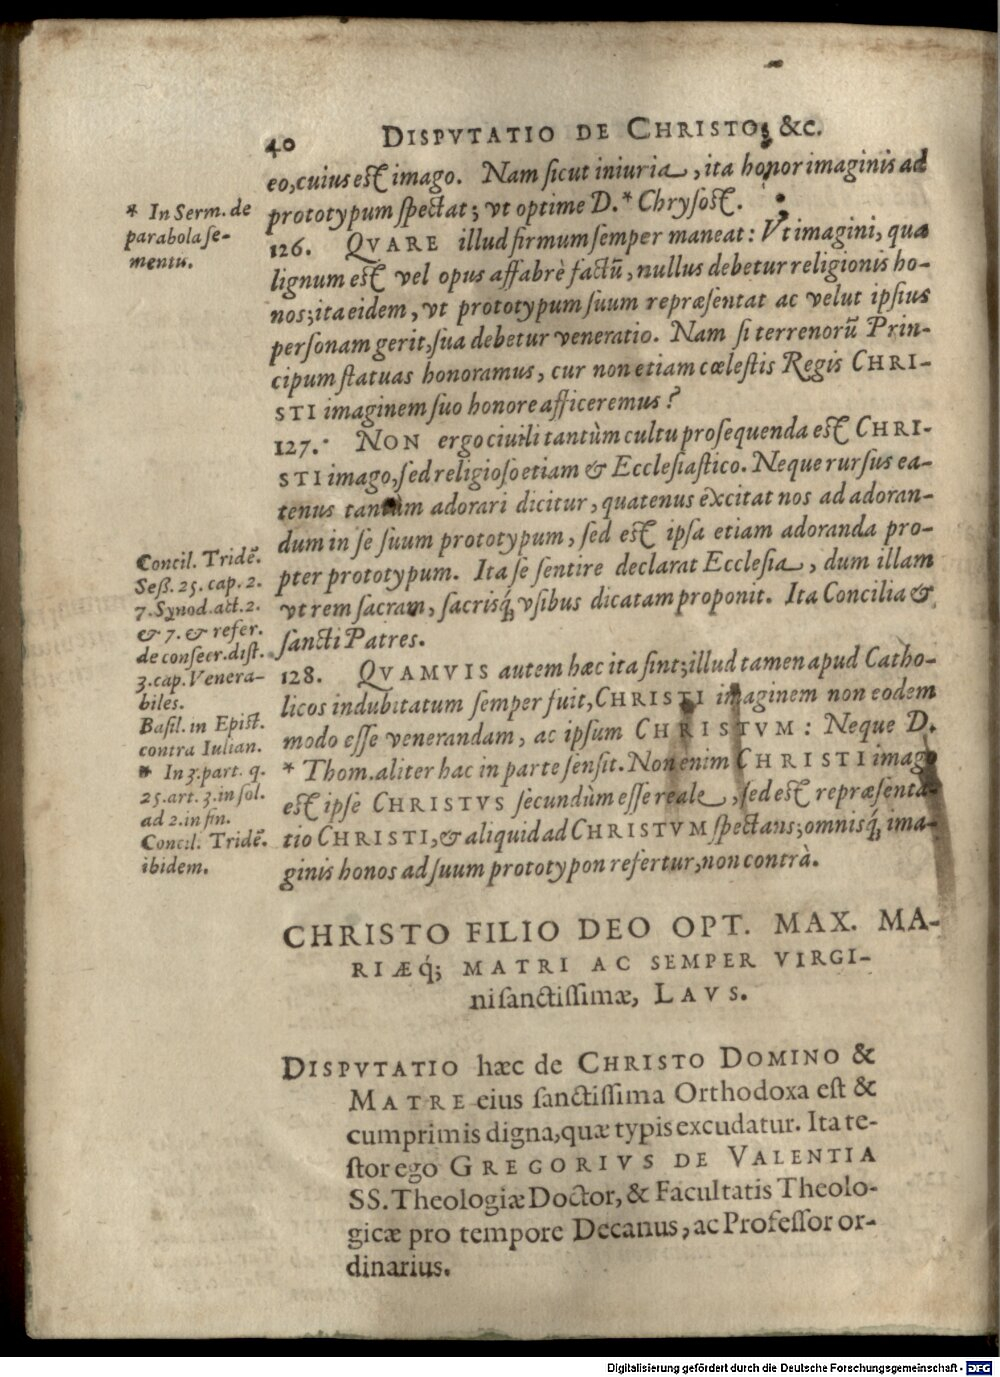 40 DISPVTATIO DE CHRISTO, &C.
eo, cuius est imago. Nam sicut iniuria, ita honor imaginis ad
prototypum spectat; vt optime D. * Chrysost.
126. QVARE illud firmum semper maneat: Vt imagini, qua
lignum est vel opus affabrè factũ, nullus debetur religionis ho-
nos; ita eidem, vt prototypum suum repræsentat ac velut ipsius
personam gerit, sua debetur veneratio. Nam si terrenorũ Prin-
cipum statuas honoramus, cur non etiam cœlestis Regis CHRI-
STI imaginem suo honore afficeremus?
127. NON ergo ciuili tantùm cultu prosequenda est CHRI-
STI imago, sed religioso etiam & Ecclesiastico. Neque rursus ea-
tenus tantùm adorari dicitur, quatenus excitat nos ad adoran-
dum in se suum prototypum, sed est ipsa etiam adoranda pro-
pter prototypum. Ita se sentire declarat Ecclesia, dum illam
vt rem sacram, sacrisq́; vsibus dicatam proponit. Ita Concilia &
sancti Patres.
128. QVAMVIS autem hæc ita sint; illud tamen apud Catho-
licos indubitatum semper fuit, CHRISTI imaginem non eodem
modo esse venerandam, ac ipsum CHRISTVM: Neque D.
* Thom. aliter hac in parte sensit. Non enim CHRISTI imago
est ipse CHRISTVS secundùm esse reale, sed est repræsenta-
tio CHRISTI, & aliquid ad CHRISTVM spectans; omnisq́; ima-
ginis honos ad suum prototypon refertur, non contrà.
* In Serm. de
parabola se-
mentis.
Concil. Tridẽ.
Seß. 25. cap. 2.
7. Synod. act. 2.
& 7. & refer.
de consecr. dist.
3. cap. Venera-
biles.
Basil. in Epist.
contra Iulian.
* In 3. part. q.
25. art. 3. in sol.
ad 2. in fin.
Concil. Tridẽ.
ibidem.
CHRISTO FILIO DEO OPT. MAX. MA-
RIÆq́; MATRI AC SEMPER VIRGI-
ni sanctissimæ, LAVS.
DISPVTATIO hæc de CHRISTO DOMINO &
MATRE eius sanctissima Orthodoxa est &
cumprimis digna, quæ typis excudatur. Ita te-
stor ego GREGORIVS DE VALENTIA
SS. Theologiæ Doctor, & Facultatis Theolo-
gicæ pro tempore Decanus, ac Professor or-
dinarius.
Digitalisierung gefördert durch die Deutsche Forschungsgemeinschaft - DFG